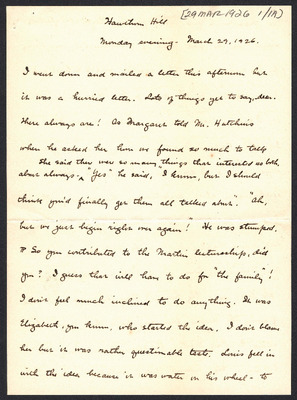 [29 MAR 1926 1/1A]
Hawthorn Hill
Monday evening - March 29, 1926.
I went down and mailed a letter this afternoon but
it was a hurried letter. Lots of things yet to say, dear.
There always are! As Margaret told Mr. Hutchins
when he asked her how we found so much to talk
She said they were so many things that interested us both,
about always. "Yes" he said, "I know, but I should
think you'd finally get them all talked about". "Ah,
but we just begin right over again"! He was stumped.
So you contributed to the Martin lectureship, did
you? I guess that will have to do for "the family"!
I don't feel much inclined to do anything. It was
Elizabeth, you know, who started the idea. I don't blame
her but it was rather questionable taste. Louis fell in
with the idea because it was water on his wheel - to